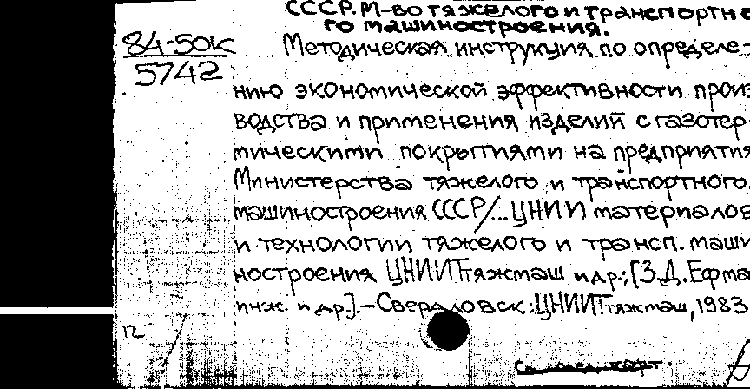 СССР. М-во тяжелого и транспортно
го машиностроения.
84-50к Методическая инструкция по определе-
5742
нию экономической эффективности произ
водства и применения изделий с газотер
мическими покрытиями на предприятия
Министерства тяжелого и транспортного
машиностроения СССР/...ЦНИИ материалов
и технологии тяжелого и трансп. маши
ностроения ЦНИИТтяжмаш и др.; [З.Д. Ефма
инж. и др.].-Свердловск: ЦНИИТтяжмаш, 1983